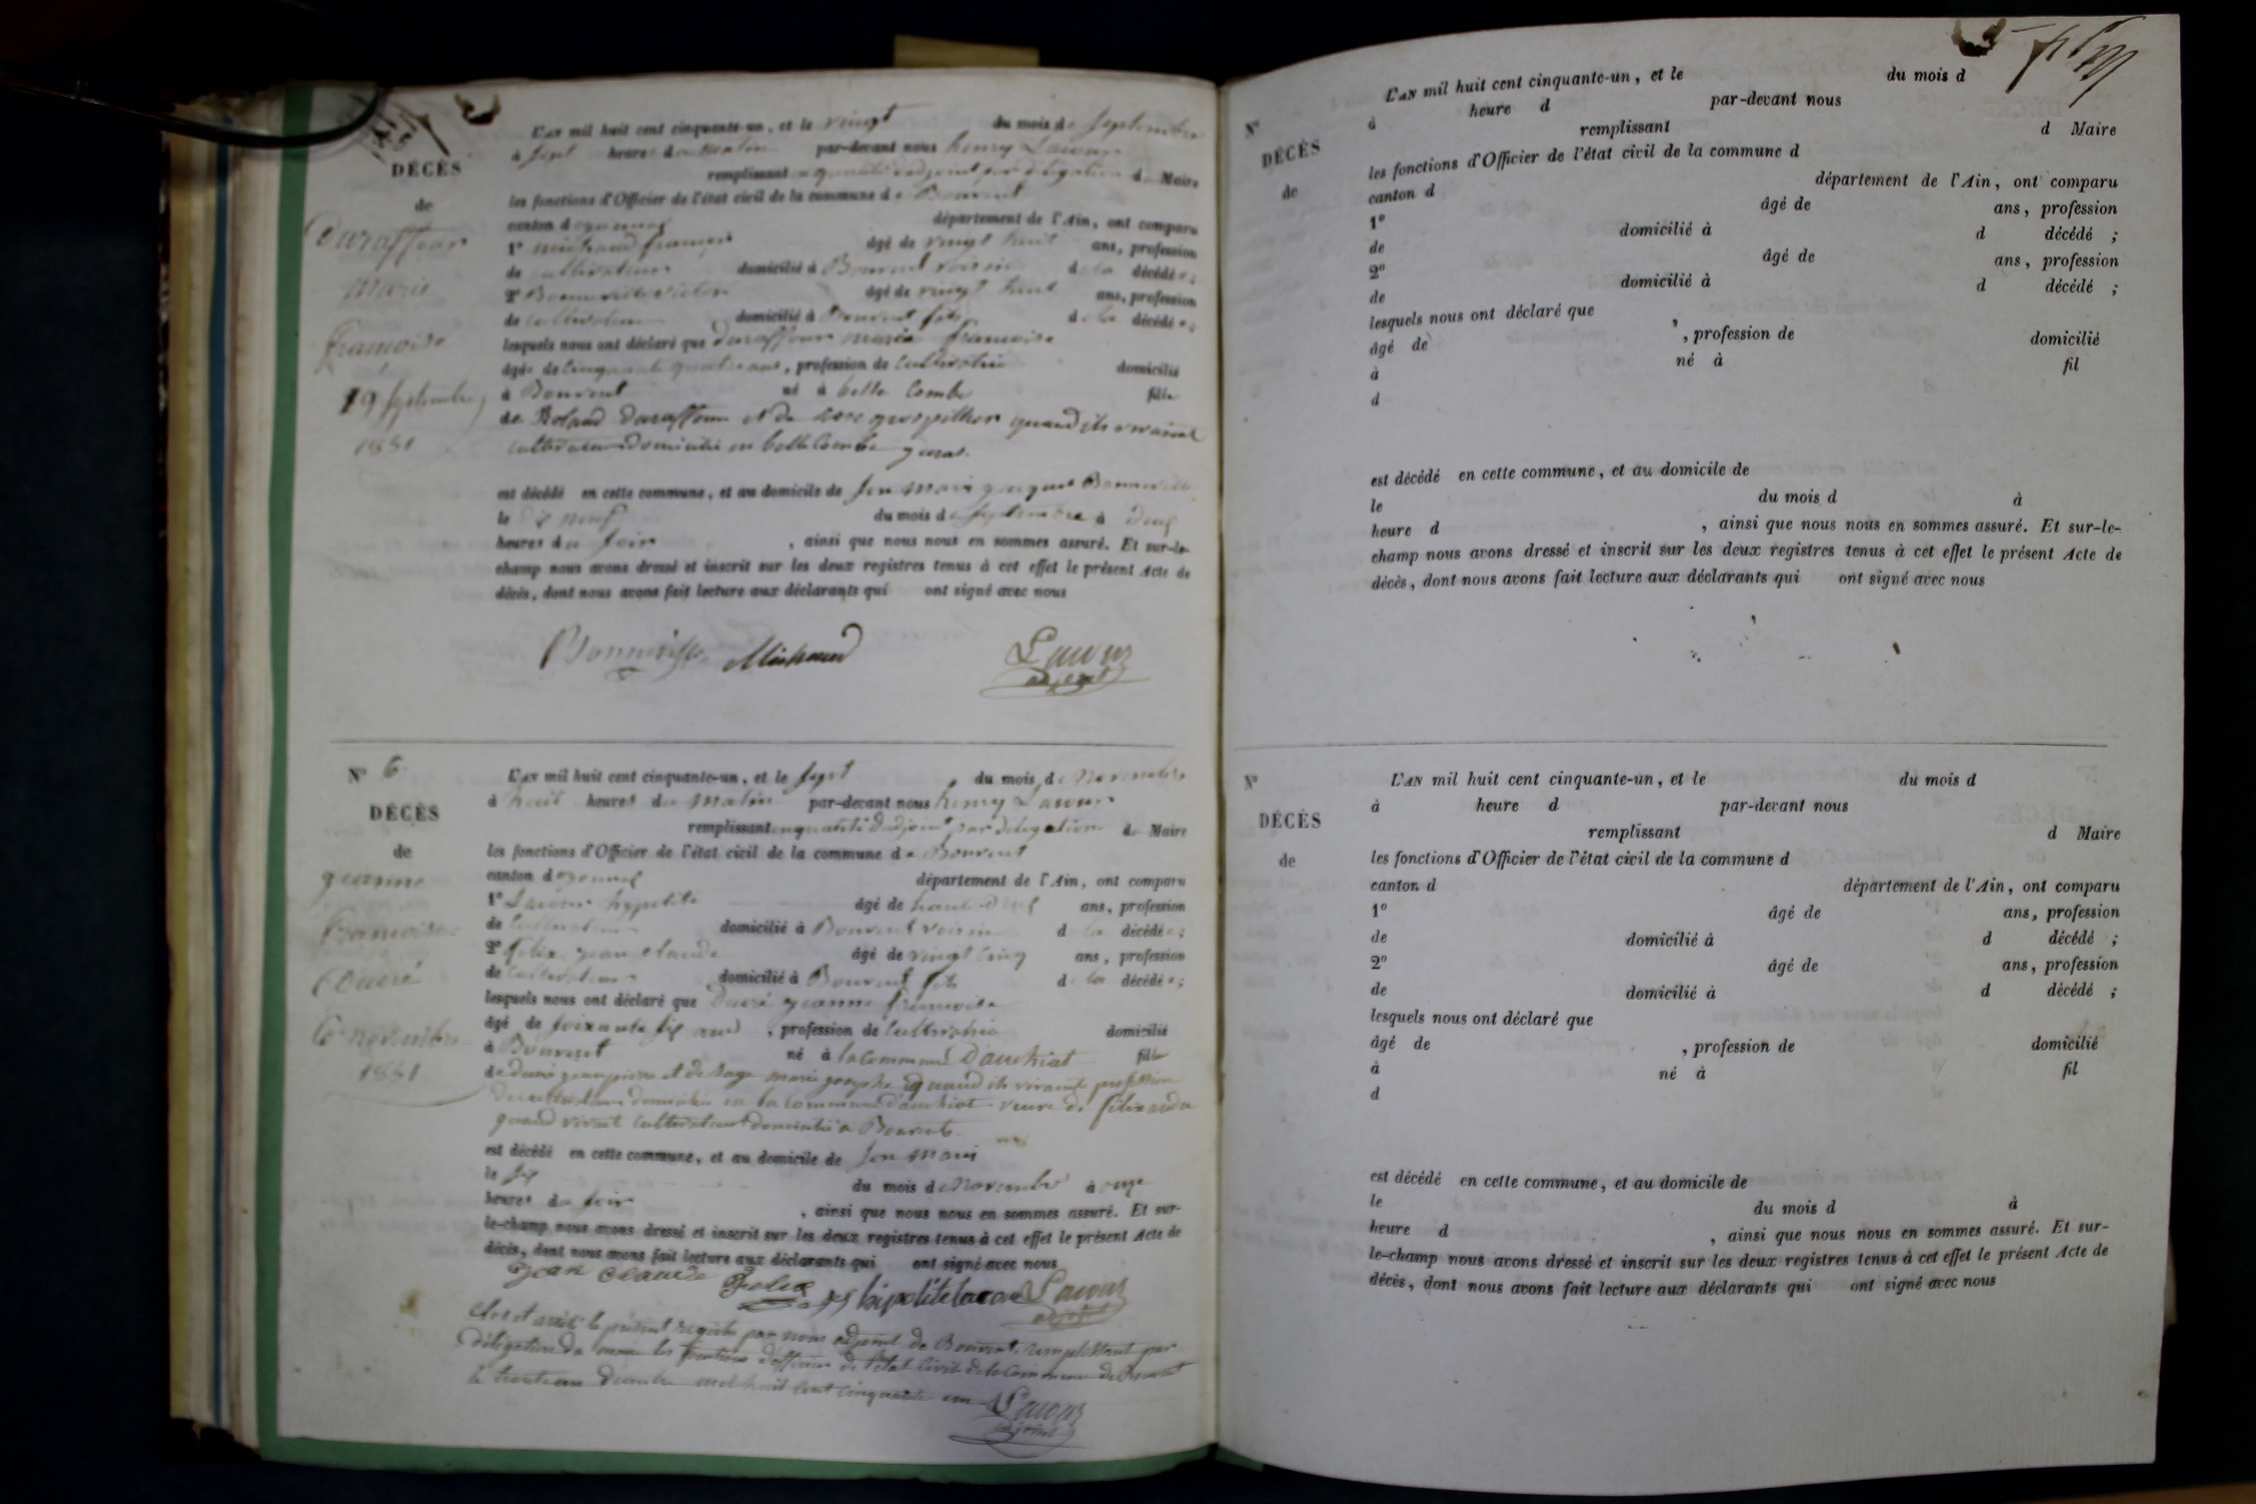 L'AN mil huit cent cinquante-un, et le vingt du mois de Septembre
à Sept heures du matin par-devant nous henry Lacour
remplissant en qualité d'adjoint par délégation de Maire
DÉCÈS
les fonctions d'Officier de l'état civil de la commune de Bouvent
de
canton d'oyonnax département de l'Ain, ont comparu
Duraffour
1º michaud françois âgé de vingt huit ans, profession
de cultivateur domicilié à Bouvent voisin de la décédée;
marie
2º Bonneville victor âgé de vingt huit ans, profession
de cultivateur domicilié à Bouvent fils de la décédée;
francoise
lesquels nous ont déclaré que duraffour marie francoise
âgée de cinquante quatre ans, profession de cultivatrice domicilié
19 Septembre
à Bouvent né à belle Combe fille
de Roland duraffour et de quand ils vivaient
1851
cultivateur domiciliés en belle Combe jurat.
est décédé en cette commune, et au domicile de son mari Bonneville
le dix neuf du mois de Septembre à
heures du soir, ainsi que nous nous en sommes assuré. Et sur-le-
champ nous avons dressé et inscrit sur les deux registres tenus à cet effet le présent Acte de
décès, dont nous avons fait lecture aux déclarants qui ont signé avec nous
Bonneville Michaud Lacour
adjoint
Nº 6
L'AN mil huit cent cinquante-un, et le sept du mois de Novembre
à huit heures du matin par-devant nous henry Lacour
DÉCÈS
remplissant en qualité d'adjoint par délégation de Maire
les fonctions d'Officier de l'état civil de la commune de Bouvent
de
canton d'oyonnax département de l'Ain, ont comparu
jeanne
1º Lacour hypolite âgé de ans, profession
de cultivateur domicilié à Bouvent voisin de la décédée;
francoise
2º félix jean claude âgé de vingt cinq ans, profession
de cultivateur domicilié à Bouvent fils de la décédée;
lesquels nous ont déclaré que jeanne francoise
âgé de soixante six ans, profession de cultivatrice domicilié
6 novembre
à Bouvent né à la Commune D'auchiat fille
1851
de jeanpierre et de marie josephe quand ils vivaient profession
de cultivateur domiciliés en la commune d'auchiat veuve de félix
quand vivait cultivateur domicilié à Bouvent
est décédé en cette commune, et au domicile de son mari
le six du mois de Novembre à onze
heures du soir, ainsi que nous nous en sommes assuré. Et sur-
le-champ nous avons dressé et inscrit sur les deux registres tenus à cet effet le présent Acte de
décès, dont nous avons fait lecture aux déclarants qui ont signé avec nous
jean claude felix hipolite lacour Lacour
adjoint
Clos et arrêté le présent registre par nous adjoint de Bouvent remplissant par
délégation du maire les fonctions d'officier de l'état civil de la Commune de Bouvent
le trente un Décembre mil huit cent cinquante un Lacour
adjoint
L'AN mil huit cent cinquante-un, et le du mois d
Nº
à heure d par-devant nous
remplissant d Maire
DÉCÈS
les fonctions d'Officier de l'état civil de la commune d
de
canton d département de l'Ain, ont comparu
1º âgé de ans, profession
de domicilié à d décédé ;
2º âgé de ans, profession
de domicilié à d décédé ;
lesquels nous ont déclaré que
âgé de , profession de domicilié
à né à fil
d
est décédé en cette commune, et au domicile de
le du mois d à
heure d , ainsi que nous nous en sommes assuré. Et sur-le-
champ nous avons dressé et inscrit sur les deux registres tenus à cet effet le présent Acte de
décès, dont nous avons fait lecture aux déclarants qui ont signé avec nous
Nº
L'AN mil huit cent cinquante-un, et le du mois d
à heure d par-devant nous
DÉCÈS
remplissant d Maire
de
les fonctions d'Officier de l'état civil de la commune d
canton d département de l'Ain, ont comparu
1º âgé de ans, profession
de domicilié à d décédé ;
2º âgé de ans, profession
de domicilié à d décédé ;
lesquels nous ont déclaré que
âgé de , profession de domicilié
à né à fil
d
est décédé en cette commune, et au domicile de
le du mois d à
heure d , ainsi que nous nous en sommes assuré. Et sur-
le-champ nous avons dressé et inscrit sur les deux registres tenus à cet effet le présent Acte de
décès, dont nous avons fait lecture aux déclarants qui ont signé avec nous